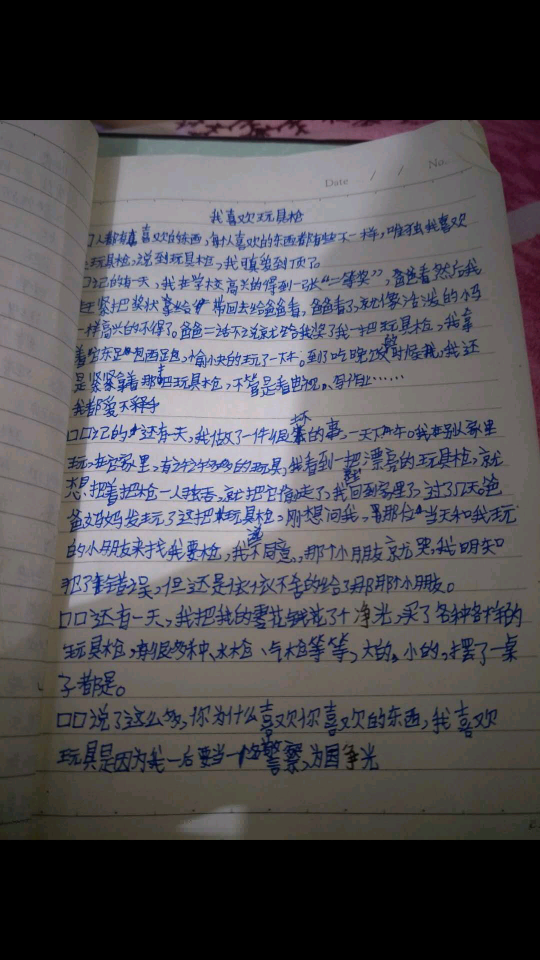 Date / / No.
我喜欢玩具枪
人都有喜欢的东西,每人喜欢的东西都有些不一样,唯独我喜欢
玩具枪,说到玩具枪,我
记的有一天,我在学校高兴的得到一张“二等奖”,爸爸看然后我
赶紧把奖状拿给 带回去给爸爸看,爸爸看了,就像活泼的小马
一样高兴的不得了。爸爸二话不说就给我奖了我一把玩具枪,我拿
着它东 西 ,愉快的玩了一下午。到了吃晚饭时候,我还
是紧紧拿着那把玩具枪,不管是看电视、写作业……
我都爱不释手
□□记的还有一天,我做了一件很坏的事,一天下午。我在别人家里
玩,在它家里,有 的玩具,我看到一把漂亮的玩具枪,就
想,把着把枪一人独吞,就把它偷走了,我回到家里了,过了几天爸
爸妈妈发玩了这把玩具枪,刚想问我, 那位当天和我玩
的小朋友来找我要枪,我不同意,那个小朋友就哭,我明知
犯了错误,但还是依依不舍的给了那那个小朋友。
□□还有一天,我把我的零花钱花了个净光,买了各种各样的
玩具枪,有很多种、水枪、气枪等等,大的,小的,摆了一桌
子都是。
□□说了这么多,你为什么喜欢你喜欢的东西,我喜欢
玩具是因为我一后要当一 警察,为国争光